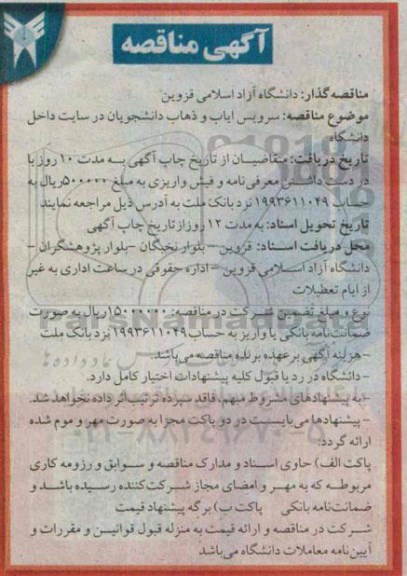 آگهی مناقصه
مناقصه گذار: دانشگاه آزاد اسلامی قزوین
موضوع مناقصه: سرویس ایاب و ذهاب دانشجویان در سایت داخل
دانشگاه
تاریخ دریافت: متقاضیان از تاریخ چاپ آگهی به مدت ۱۰ روز با
در دست داشتن معرفی نامه و فیش واریزی به مبلغ ۵۰۰۰۰۰ ریال به
حساب ۱۹۹۳۶۱۱۰۴۹ نزد بانک ملت به آدرس ذیل مراجعه نمایند
تاریخ تحویل اسناد: به مدت ۱۲ روز از تاریخ چاپ آگهی
محل دریافت اسناد: قزوین – بلوار نخبگان – بلوار پژوهشگران –
دانشگاه آزاد اسلامی قزوین – اداره حقوقی در ساعت اداری به غیر
از ایام تعطیلات
نوع و مبلغ تضمین شرکت در مناقصه: ۱۵۰۰۰۰۰۰ ریال به صورت
ضمانت نامه بانکی یا واریز به حساب ۱۹۹۳۶۱۱۰۴۹ نزد بانک ملت
– هزینه آگهی بر عهده برنده مناقصه می باشد.
– دانشگاه در رد یا قبول کلیه پیشنهادات اختیار کامل دارد.
– به پیشنهادهای مشروط مبهم، فاقد سپرده ترتیب اثر داده نخواهد شد
– پیشنهادها می بایست در دو پاکت مجزا به صورت مهر و موم شده
ارائه گردد:
پاکت الف) حاوی اسناد و مدارک مناقصه و سوابق و رزومه کاری
مربوطه که به مهر و امضای مجاز شرکت کننده رسیده باشد و
ضمانت نامه بانکی پاکت ب) برگه پیشنهاد قیمت
شرکت در مناقصه و ارائه قیمت به منزله قبول قوانین و مقررات و
آیین نامه معاملات دانشگاه می باشد